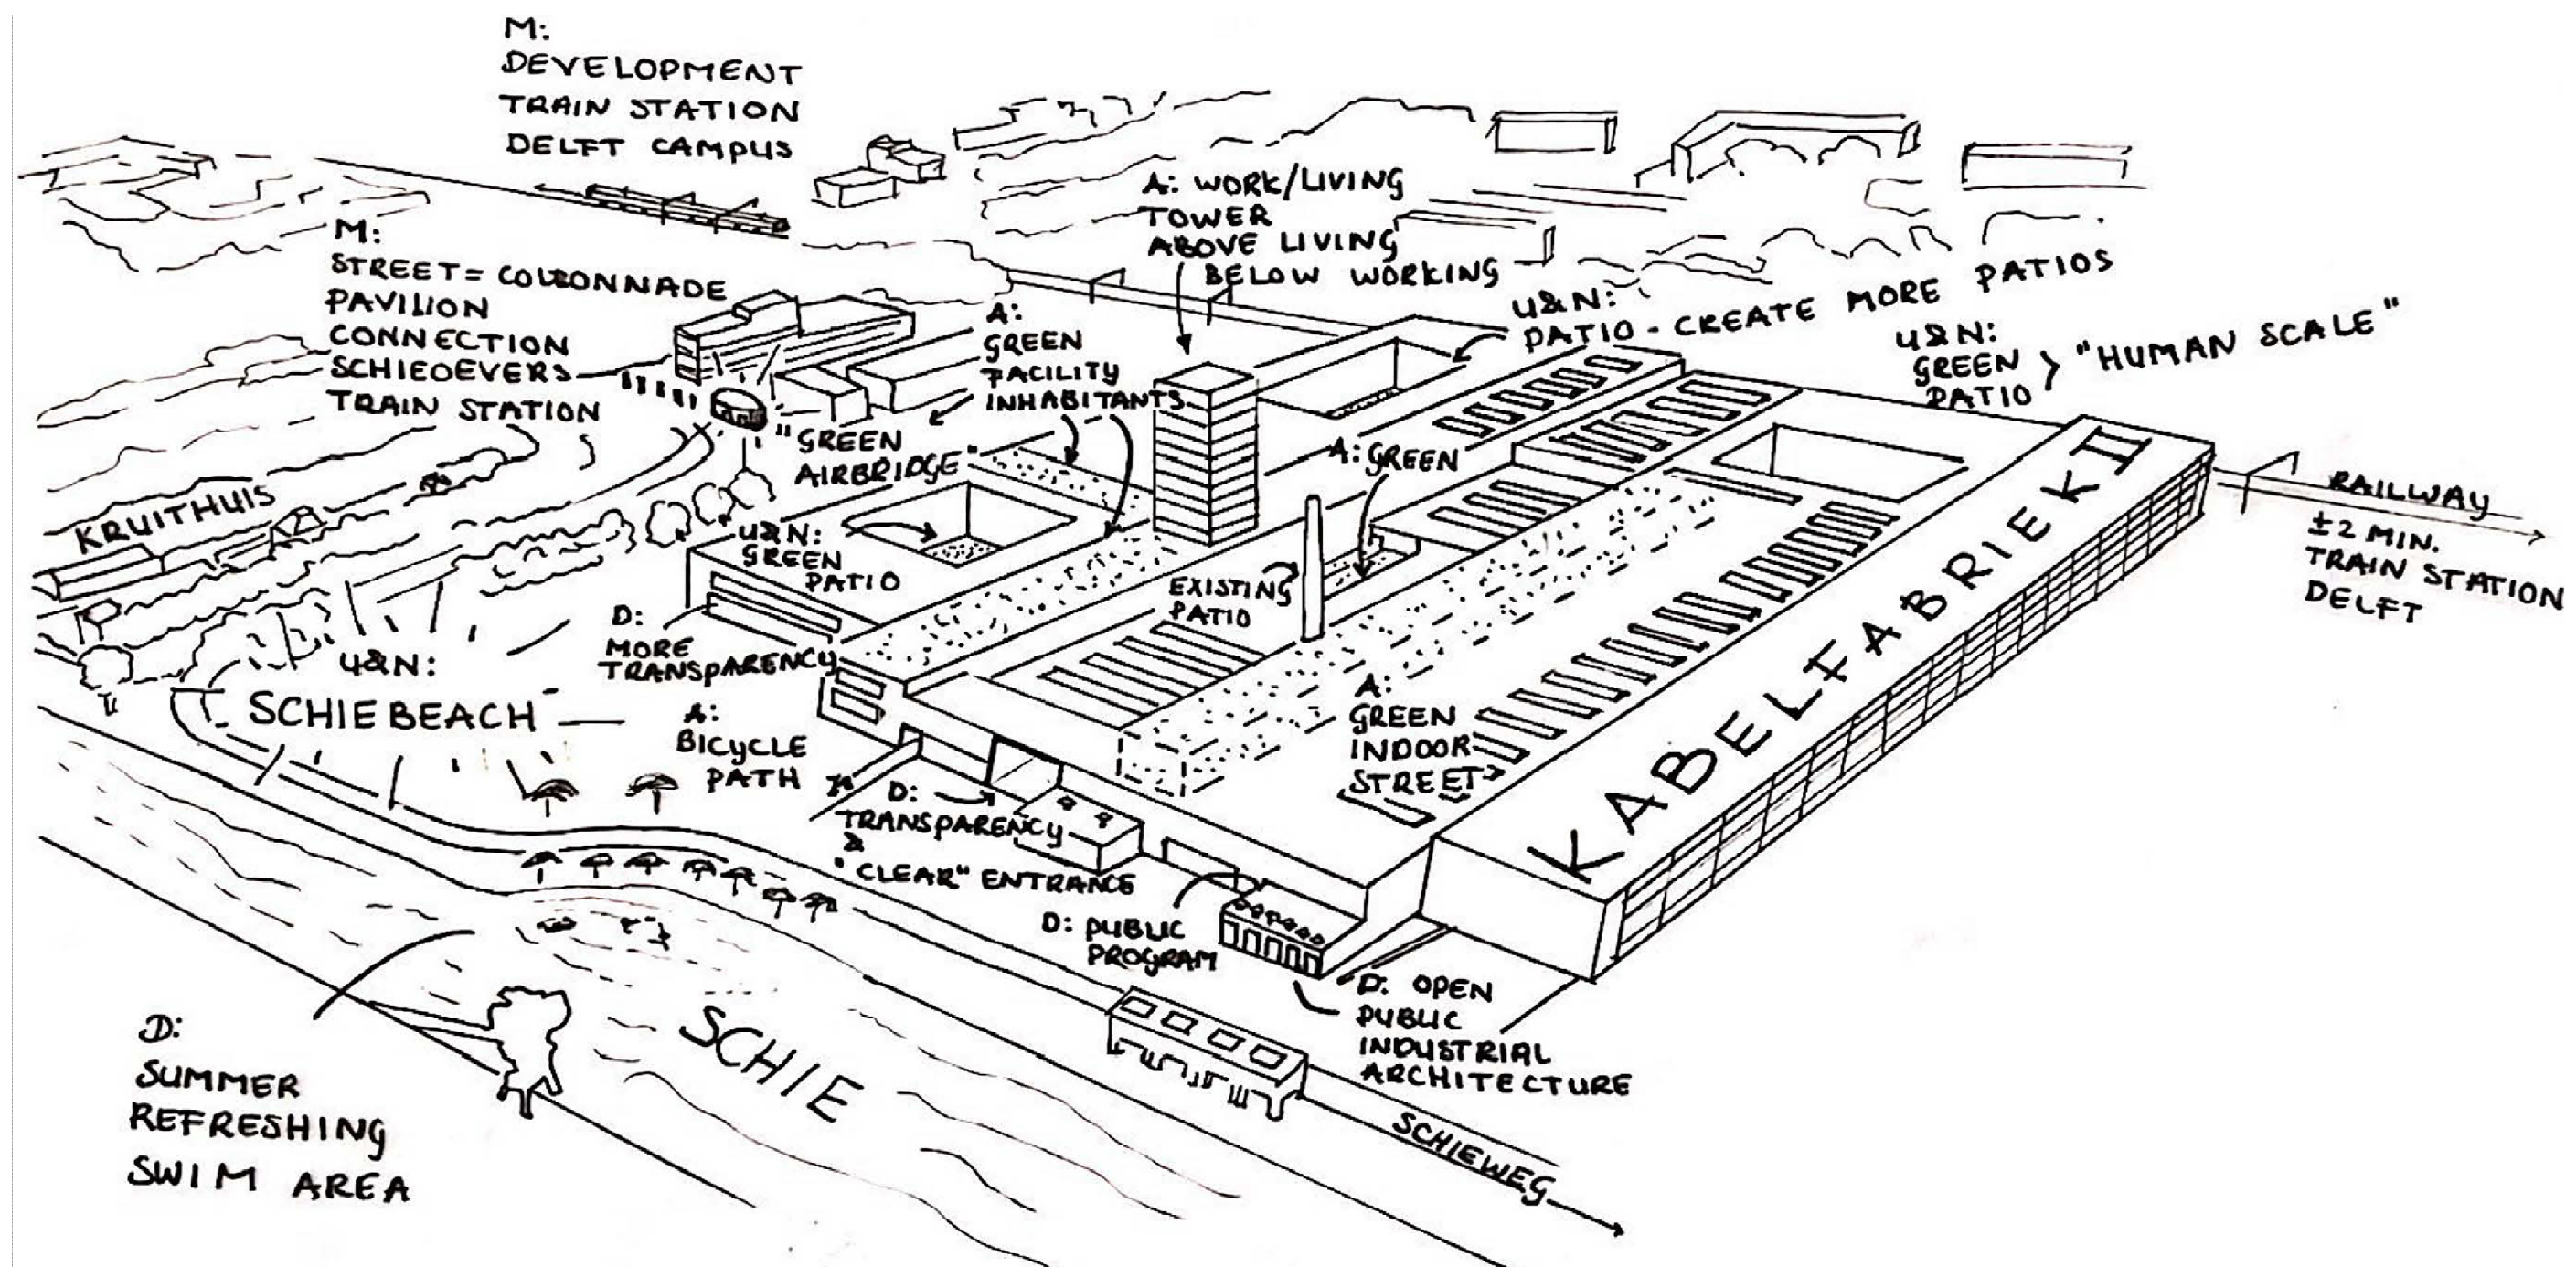 M:
DEVELOPMENT
TRAIN STATION
DELFT CAMPUS
M:
STREET = COLONNADE
PAVILION
CONNECTION
SCHIEOEVERS
TRAIN STATION
A: WORK/LIVING
TOWER
ABOVE LIVING
BELOW WORKING
U&N:
PATIO - CREATE MORE PATIOS
U&N:
GREEN
PATIO } "HUMAN SCALE"
A:
GREEN
FACILITY
INHABITANTS
"GREEN
AIRBRIDGE"
A: GREEN
KRUITHUIS
U&N:
GREEN
PATIO
EXISTING
PATIO
KABELFABRIEK II
RAILWAY
±2 MIN.
TRAIN STATION
DELFT
D:
MORE
TRANSPARENCY
U&N:
SCHIEBEACH
A:
BICYCLE
PATH
A:
GREEN
INDOOR
STREET
D:
TRANSPARENCY
&
"CLEAR" ENTRANCE
D: PUBLIC
PROGRAM
D: OPEN
PUBLIC
INDUSTRIAL
ARCHITECTURE
D:
SUMMER
REFRESHING
SWIM AREA
SCHIE
SCHIEWEG